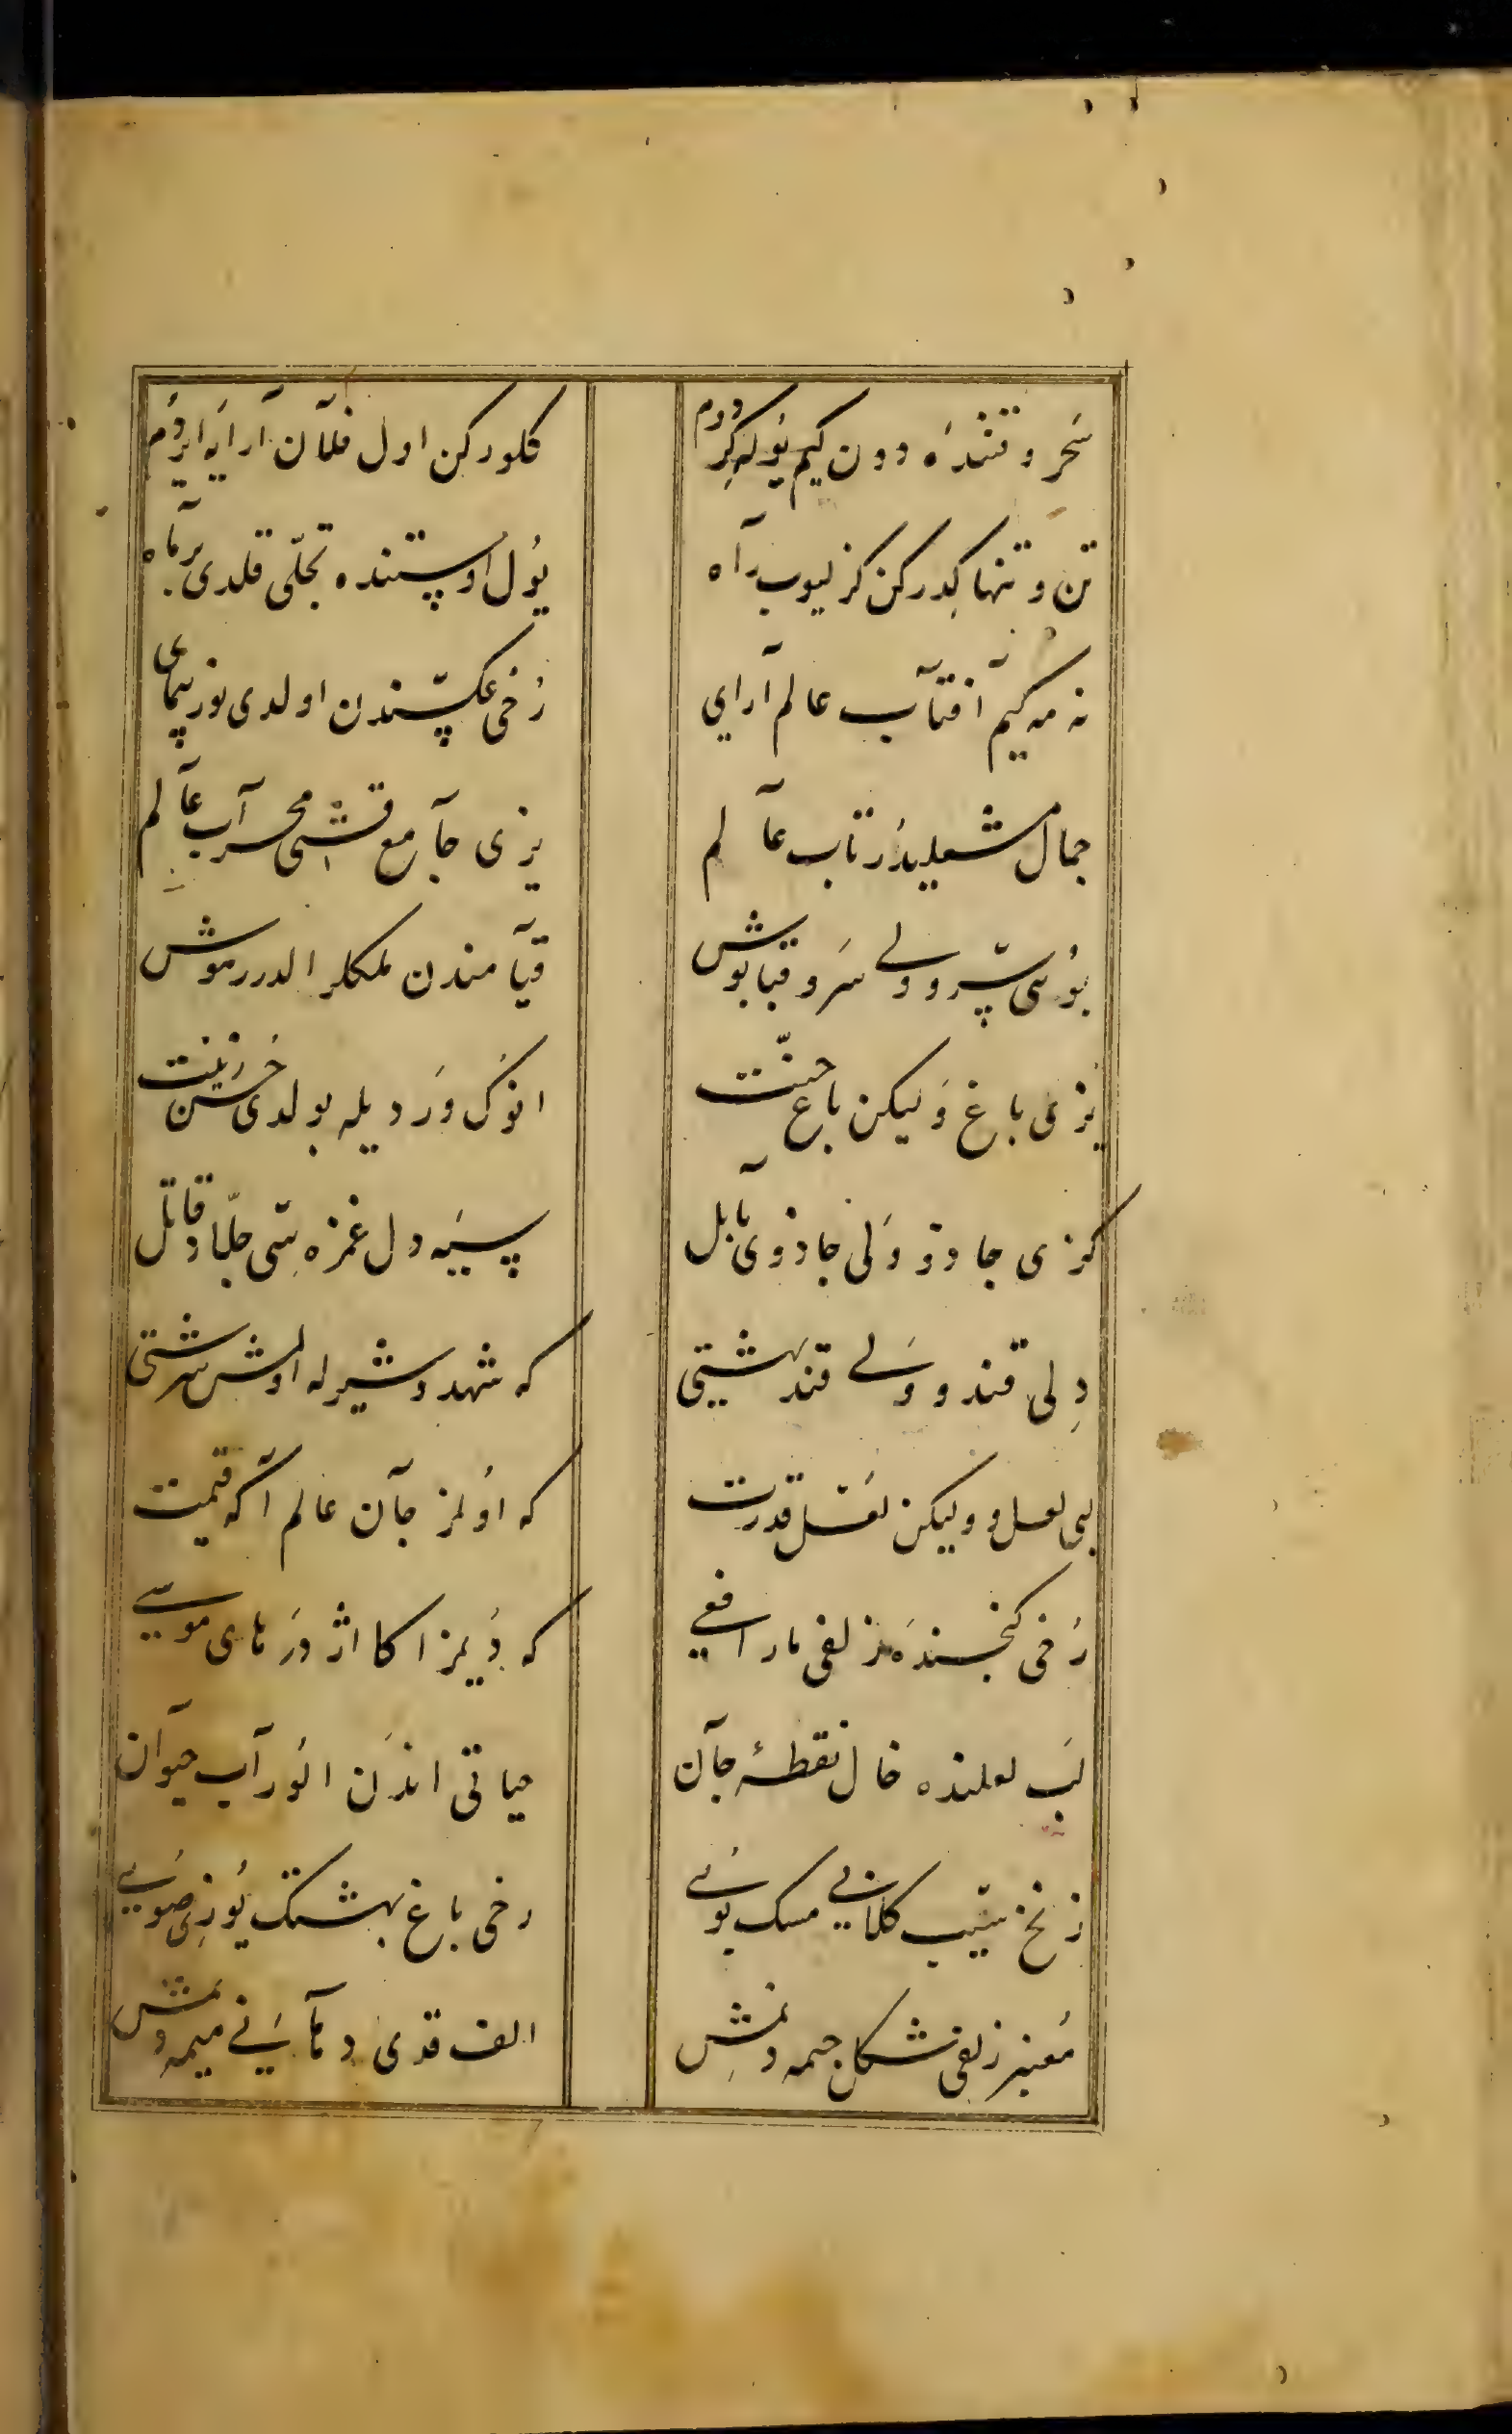 سَحر وقتندَه دون کیم یوله کِردرم کلورکن اول فلآن آرایه ایردُم
تن و تنها کِدرکن کزلیوب راه یوُل اوستنده تجلّی قلدی بر مآه
نه مه کیم آفتآب عالم آرای رُخی عکسندن اولدی نور پیمای
جمال مشعلیدُر تاب عآلم یزی جآمع قشی محرآب عآلم
بوُسی سرو ولی سَرو قباپوش قیآمندن ملکلر الدرر هوش
یوُزی باغ وَلیکن باغ جنّت انوُک وَردیله بولدی حُسن زینت
کوزی جادو وَلی جادُوی بآبل سیَه دل غمزه سِی جلّاد قاتل
دِلی قند و وَلی قند بهشتی که شهد و شیرله اولمش سرشتی
لبی لعل و ولیکن لعَل قدرت که اوُلمز جآن عالم آکه قیمت
رُخی کنجنده زلفی مار افعی که دُیمز اکا اژدَرهای موسی
لَب لعلنده خال نقطهٔ جآن حیاتی اندَن الوُر آب حیوان
زنخ سیب کلابی مسک بوُی رخی باغ بهشتک یوُزی صوُیی
مُعنبر زلفی شکل جیمه دنمِش الف قدی دهآنی میمه دنمش